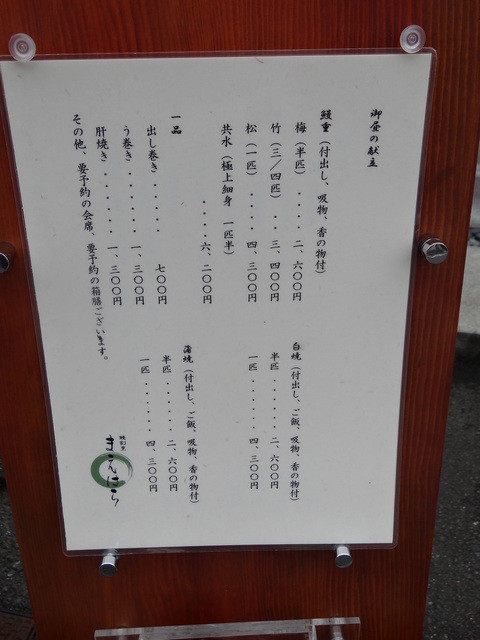 御昼の献立
鰻重（付出し、吸物、香の物付）
梅（半匹）・・・・二、六〇〇円
竹（三／四匹）・・・三、四〇〇円
松（一匹）・・・・四、三〇〇円
共水（極上細身　一匹半）
・・・・・六、二〇〇円
一品
出し巻き・・・・・七〇〇円
う巻き・・・・・・一、三〇〇円
肝焼き・・・・・・一、三〇〇円
その他、要予約の会席、要予約の箱膳ございます。
白焼（付出し、ご飯、吸物、香の物付）
半匹・・・・・・・二、六〇〇円
一匹・・・・・・・四、三〇〇円
蒲焼（付出し、ご飯、吸物、香の物付）
半匹・・・・・・・二、六〇〇円
一匹・・・・・・・四、三〇〇円
まえはら